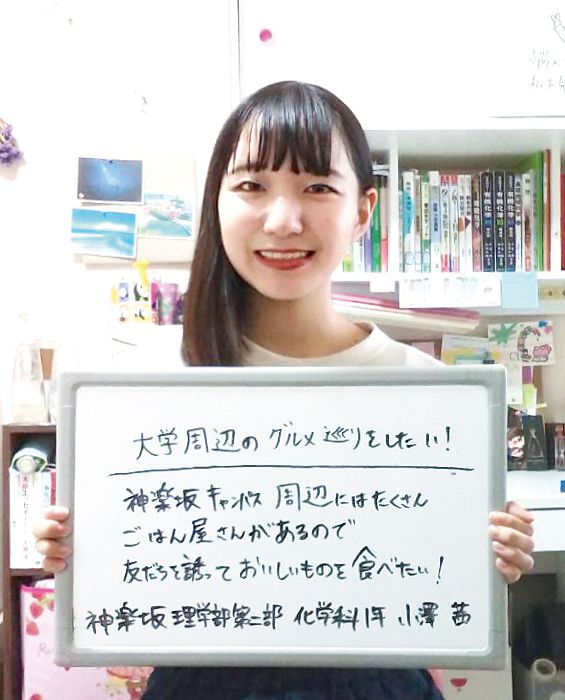 大学周辺のグルメ巡りをしたい!
神楽坂キャンパス周辺にはたくさん
ごはん屋さんがあるので
友だちを誘っておいしいものを食べたい!
神楽坂 理学部第二部 化学科1年 小澤 茜
有機化学
有機化学
有機化学